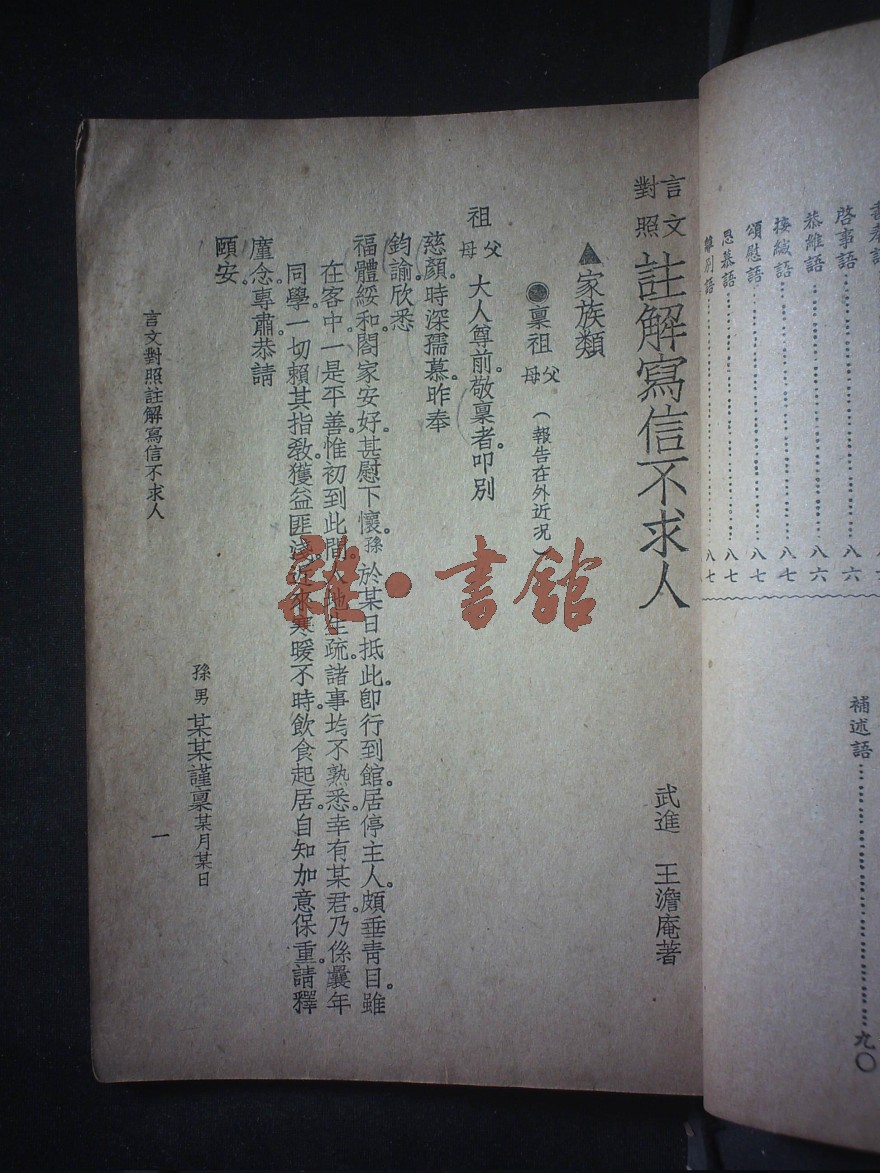 言文對照 註解寫信不求人
武進 王澹庵著
▲家族類
●稟祖父母（報告在外近況）
祖父母大人尊前。敬稟者。叩別
慈顏。時深孺慕。昨奉
鈞諭。欣悉
福體綏和。閤家安好。甚慰下懷。孫於某日抵此。卽行到館。居停主人。頗垂青目。雖
在客中。一是平善。惟初到此間。人地生疏。諸事均不熟悉。幸有某君。乃係曩年
同學。一切賴其指教。獲益匪淺。近來寒暖不時。飲食起居。自知加意保重。請釋
廑念。專肅恭請
頤安。
孫男某某謹稟某月某日
言文對照註解寫信不求人
一
雜·書館
啓事語 八六
恭維語 八六
接緘語 八七
頌慰語 八七
思慕語 八七
離別語 八七
補述語 九〇